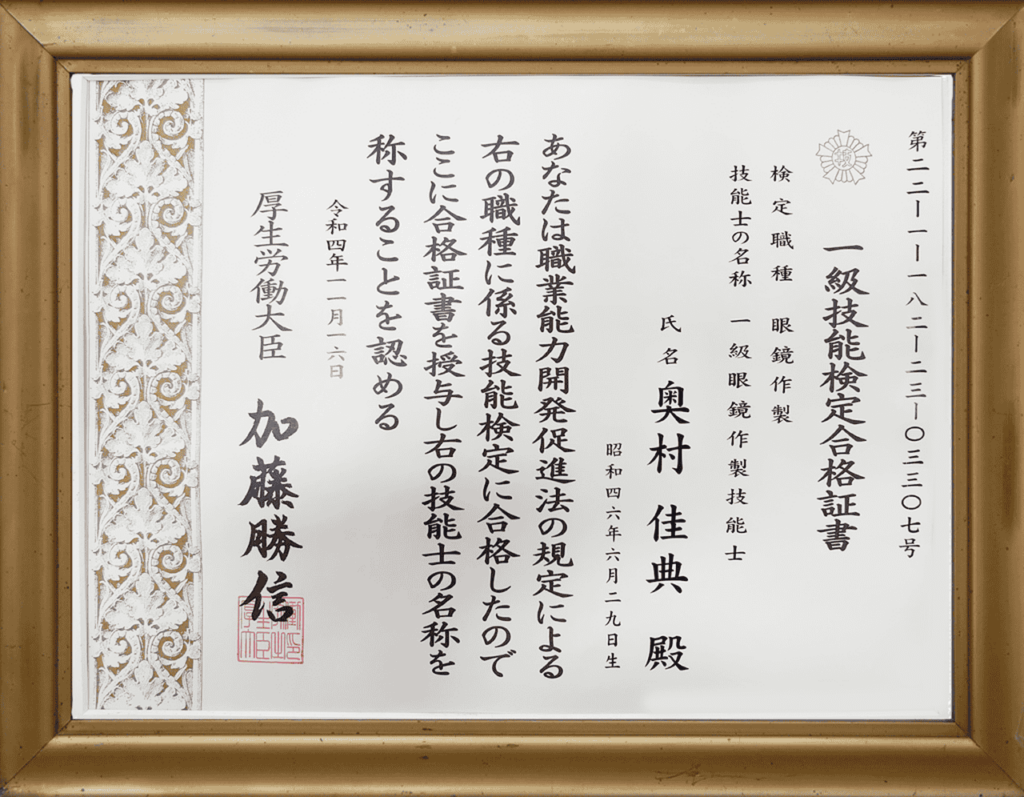 第二二ー一ー一八二ー二三ー〇三三〇七号
一級技能検定合格証書
検定職種 眼鏡作製
技能士の名称 一級眼鏡作製技能士
氏名 奥村 佳典 殿
昭和四六年六月二九日生
あなたは職業能力開発促進法の規定による
右の職種に係る技能検定に合格したので
ここに合格証書を授与し右の技能士の名称を
称することを認める
令和四年一一月一六日
厚生労働大臣 加藤勝信